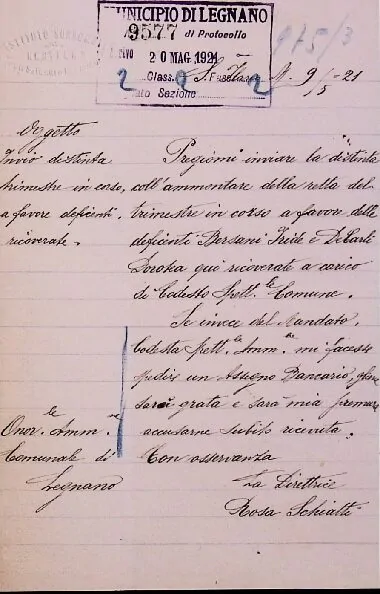 MUNICIPIO DI LEGNANO
9577 di Protocollo
20 MAG. 1921
2 Class. 2 Fasc. 2
Sezione
975/3
9/5-21
Oggetto
Invio distinta
trimestre in corso,
a favore deficienti
ricoverate.
Pregiomi inviare la distinta
coll'ammontare della retta del
trimestre in corso a favore delle
deficienti Bersani Iride e De Carli
Dorotea qui ricoverate a carico
di Codesto Spett.le Comune.
Se invece del Mandato,
Codesta Spett.le Amm.ne mi facesse
spedire un Assegno Bancario, gliene
sarei grata e sarà mia premura
accusarne subito ricevuta.
Con osservanza
La Direttrice
Rosa Schiatti
Onor.le Amm.ne
Comunale di
Legnano